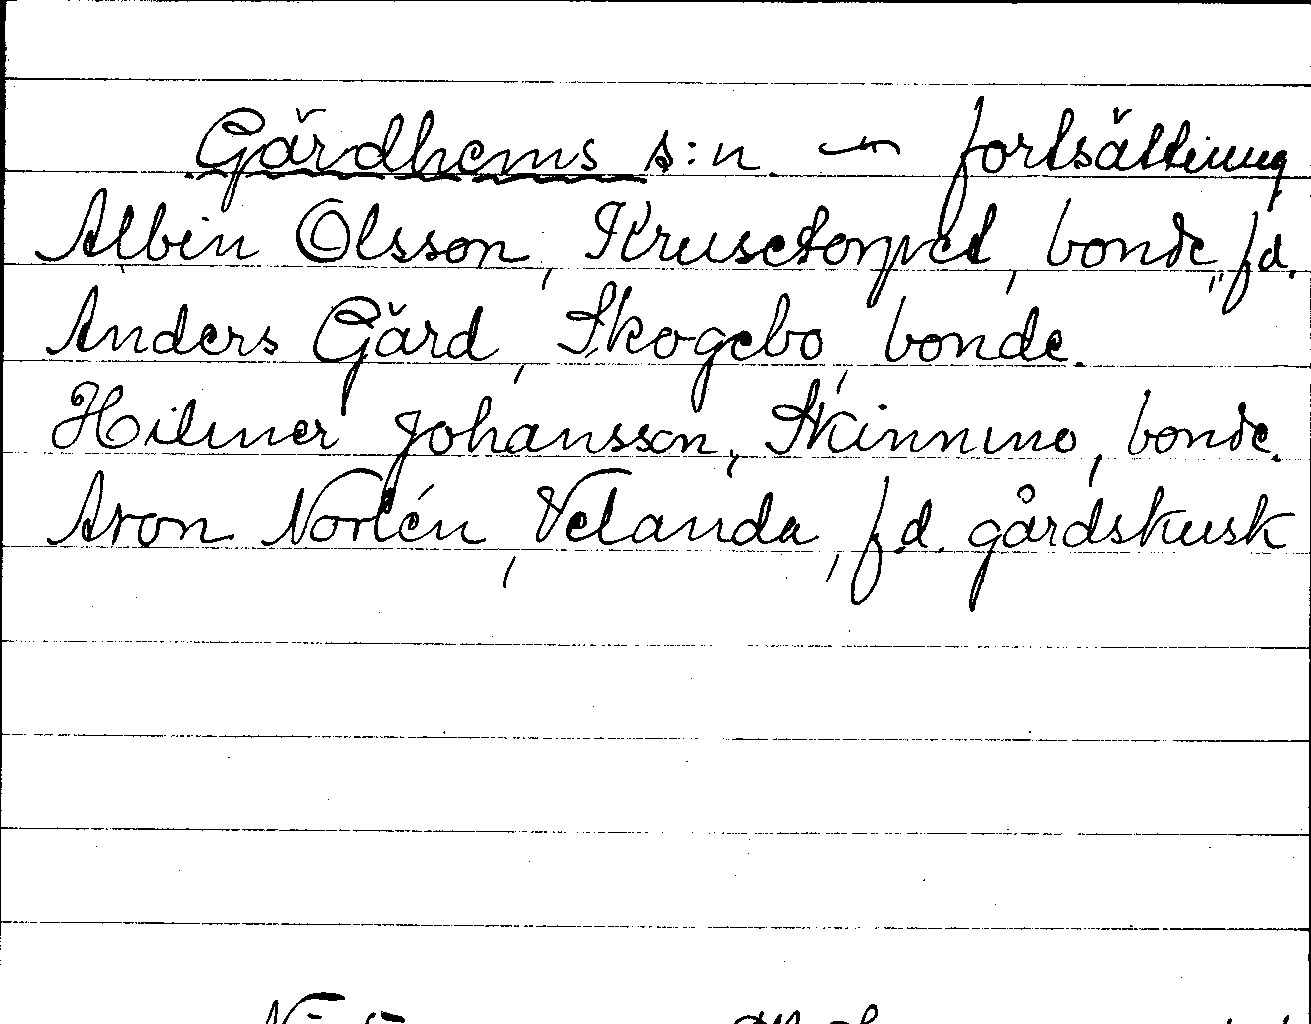 Gärdhems s:n — fortsättning
Albin Olsson, Krusetorpet, bonde, f.d.
Anders Gärd, Skogebo, bonde.
Hilmer Johansson, Skinnmo, bonde.
Aron Norlén, Velanda, f.d. gårdskusk